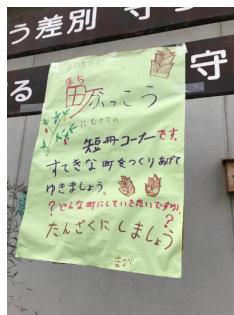 う差別 守
る 守
まち
にむけての
短冊コーナーです。
すてきな町をつくりあげて
ゆきましょう。
?どんな町にしていきたいですか?
たんざくにしましょう